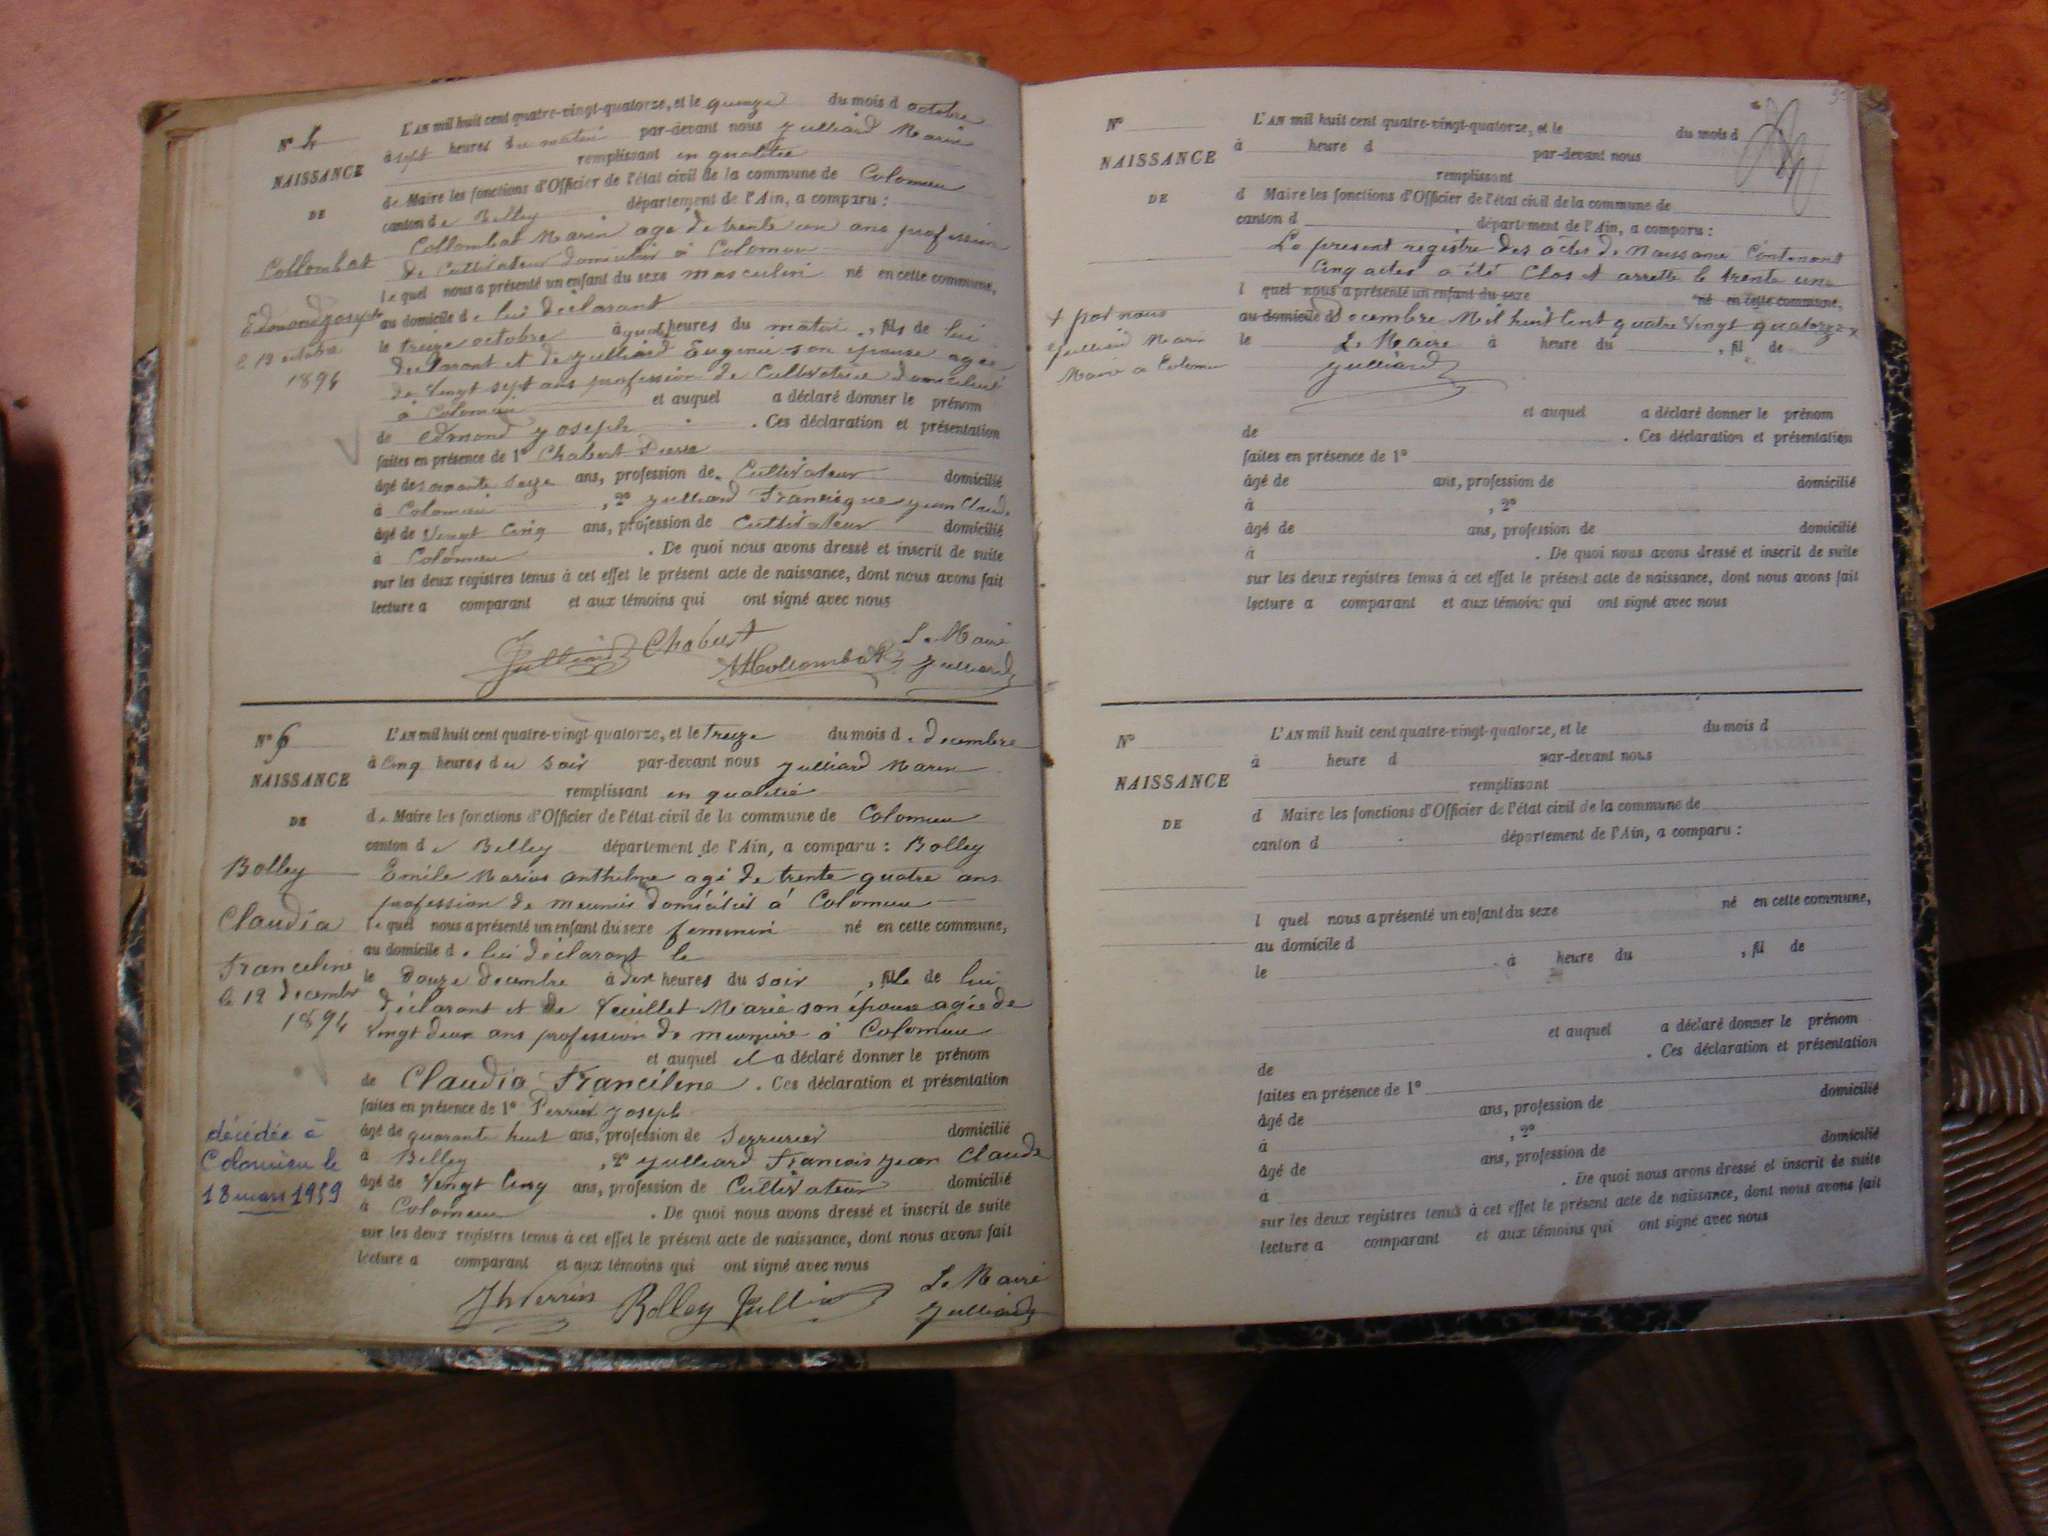 N° 4
NAISSANCE
DE
Collombat
Edmond Joseph
le 13 octobre
1894
L'AN mil huit cent quatre-vingt-quatorze, et le quinze du mois d octobre
à sept heures du matin par-devant nous Julliard Marin
remplissant en qualitée
de Maire les fonctions d'Officier de l'état civil de la commune de Colomieu
canton de Belley département de l'Ain, a comparu :
Collombat Marin agé de trente un ans profession
de Cultivateur domicilié à Colomieu
le quel nous a présenté un enfant du sexe masculin né en cette commune,
au domicile de lui déclarant
le treize octobre à heures du matin, fils de lui
déclarant et de Julliard Eugenie son épouse agée
de vingt sept ans profession de Cultivatrice domiciliée
à Colomieu et auquel a déclaré donner le prénom
de Edmond Joseph . Ces déclaration et présentation
faites en présence de 1° Chabert Pierre
âgé de soixante seize ans, profession de Cultivateur domicilié
à Colomieu , 2° Julliard Francisque Jean Claude
âgé de Vingt Cinq ans, profession de Cultivateur domicilié
à Colomieu . De quoi nous avons dressé et inscrit de suite
sur les deux registres tenus à cet effet le présent acte de naissance, dont nous avons fait
lecture a comparant et aux témoins qui ont signé avec nous
Julliard Chabert Collombat Le Maire
Julliard
N° 5
NAISSANCE
DE
Bolley
Claudia
Franceline
le 12 decembre
1894
décédée à
Colomieu le
18 mars 1959
L'AN mil huit cent quatre-vingt-quatorze, et le treize du mois de decembre
à Cinq heures du soir par-devant nous Julliard Marin
remplissant en qualitée
de Maire les fonctions d'Officier de l'état civil de la commune de Colomieu
canton de Belley département de l'Ain, a comparu : Bolley
Emile Marius Anthelme agé de trente quatre ans
profession de meunier domicilié à Colomieu
le quel nous a présenté un enfant du sexe feminin né en cette commune,
au domicile de lui déclarant le
le Douze decembre à dix heures du soir , fille de lui
déclarant et de Veuillet Marie son épouse agée de
vingt deux ans profession de meunière à Colomieu
et auquel il a déclaré donner le prénom
de Claudia Franceline . Ces déclaration et présentation
faites en présence de 1° Perrin Joseph
âgé de quarante huit ans, profession de Serrurier domicilié
à Belley , 2° Julliard Francois Jean Claude
âgé de Vingt Cinq ans, profession de Cultivateur domicilié
à Colomieu . De quoi nous avons dressé et inscrit de suite
sur les deux registres tenus à cet effet le présent acte de naissance, dont nous avons fait
lecture a comparant et aux témoins qui ont signé avec nous
Jh Perrin Bolley Julliard Le Maire
Julliard
N°
NAISSANCE
DE
L'AN mil huit cent quatre-vingt-quatorze, et le du mois d
à heure d par-devant nous
remplissant
d Maire les fonctions d'Officier de l'état civil de la commune de
canton d , département de l'Ain, a comparu :
Le present registre des actes de Naissance Contenant
Cinq actes a été Clos et arretté le trente une
l quel nous a présenté un enfant du sexe né en cette commune,
au domicile d decembre Mil huit Cent quatre Vingt quatorze x
le Le Maire à heure du , fil de
Julliard
+ par nous
Julliard Marin
Maire a Colomieu
et auquel a déclaré donner le prénom
de . Ces déclaration et présentation
faites en présence de 1°
âgé de ans, profession de domicilié
à , 2°
âgé de ans, profession de domicilié
à . De quoi nous avons dressé et inscrit de suite
sur les deux registres tenus à cet effet le présent acte de naissance, dont nous avons fait
lecture a comparant et aux témoins qui ont signé avec nous
N°
NAISSANCE
DE
L'AN mil huit cent quatre-vingt-quatorze, et le du mois d
à heure d par-devant nous
remplissant
d Maire les fonctions d'Officier de l'état civil de la commune de
canton d département de l'Ain, a comparu :
l quel nous a présenté un enfant du sexe né en cette commune,
au domicile d
le à heure du , fil de
et auquel a déclaré donner le prénom
de . Ces déclaration et présentation
faites en présence de 1°
âgé de ans, profession de domicilié
à , 2°
âgé de ans, profession de domicilié
à . De quoi nous avons dressé et inscrit de suite
sur les deux registres tenus à cet effet le présent acte de naissance, dont nous avons fait
lecture a comparant et aux témoins qui ont signé avec nous